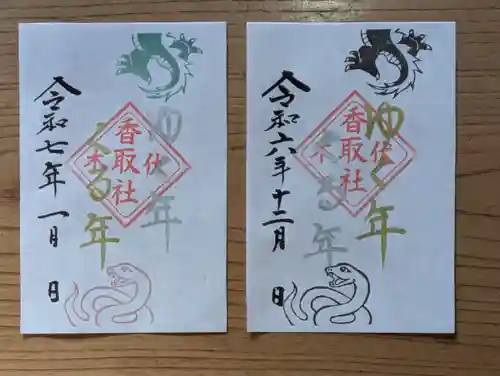 ゆく年
伏
香取社
木
くる年
令和七年一月 日
ゆく年
伏
香取社
木
くる年
令和六年十二月 日